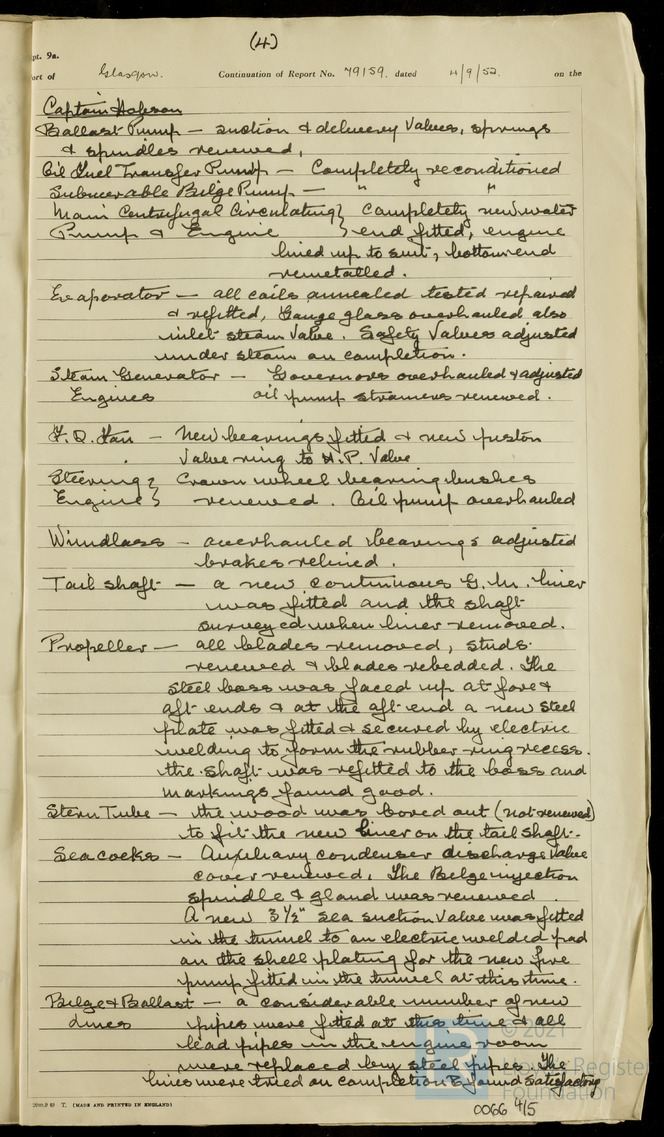 (4)
pt. 9a.
ort of Glasgow. Continuation of Report No. 79159. dated 4/9/52. on the
Captain Hobson
Ballast Pump — suction & delivery valves, springs
& spindles renewed,
Oil Fuel Transfer Pump — Completely reconditioned
Submersable Belge Pump — " "
Main Centrufugal Circulating } completely new water
Pump & Engine } end fitted, engine
lined up to suit, bottom end
remetalled.
Evaporator — all coils annealed tested repaired
& refitted, Gauge glass overhauled also
inlet steam valve. Safety Valves adjusted
under steam on completion.
Steam Generator — Governors overhauled & adjusted
Engines oil pump strainers renewed.
F. D. Fan — New bearings fitted & new piston
valve ring to H.P. Valve
Steering } Crown wheel bearing bushes
Engine } renewed. Oil pump overhauled
Windlass — overhauled bearings adjusted
brakes relined.
Tail shaft — a new continuous G.M. liner
was fitted and the shaft
surveyed when liner removed.
Propeller — all blades removed, studs
renewed & blades rebedded. The
steel boss was faced up at fore &
aft ends & at the aft end a new steel
plate was fitted & secured by electric
welding to form the rubber ring recess.
the shaft was refitted to the boss and
markings found good.
Stern Tube — the wood was bored out (not renewed)
to fit the new liner on the tail shaft.
Sea cocks — Auxiliary condenser discharge valve
cover renewed. The Belge injection
spindle & gland was renewed
A new 3½" sea suction valve was fitted
in the tunnel to an electric welded pad
on the shell plating for the new fire
pump fitted in the tunnel at this time.
Belge & Ballast — a considerable number of new
lines pipes were fitted at this time & all
lead pipes in the engine room
were replaced by steel pipes. The
lines were tried on completion & found satisfactory
© 2021
Lloyd's Register
Foundation
T. (MADE AND PRINTED IN ENGLAND)
0066 4/5